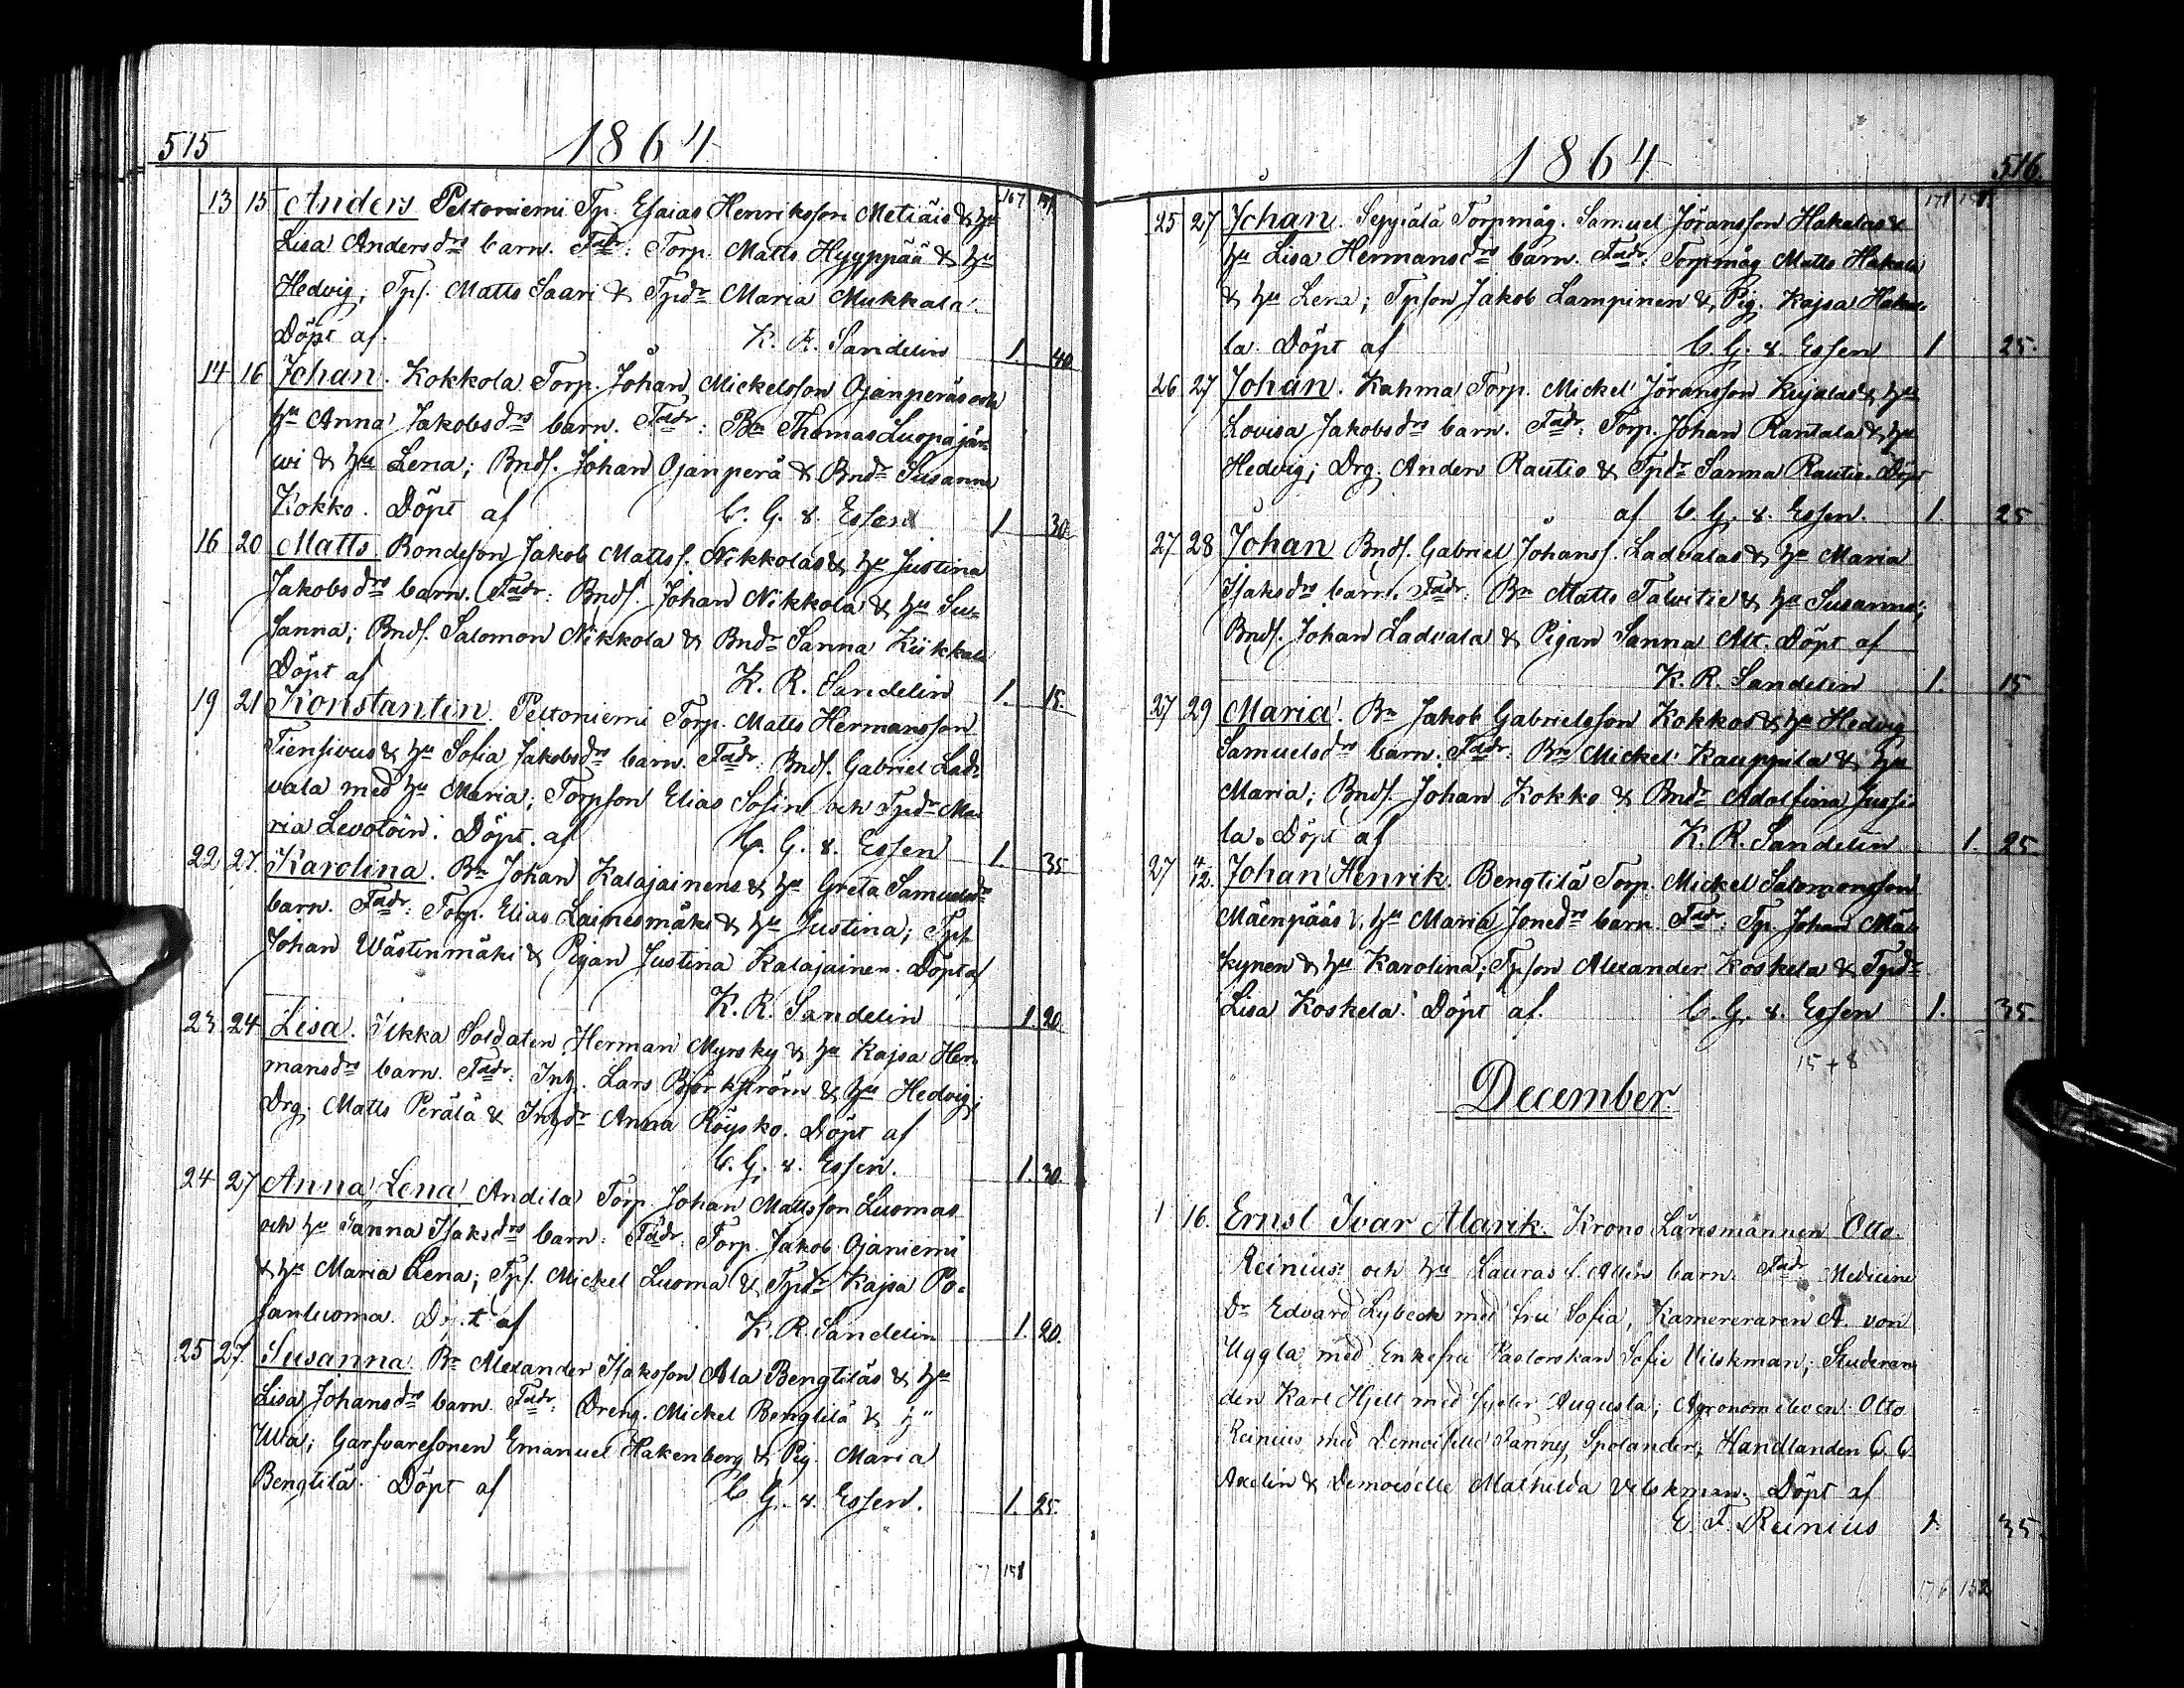 515
1864
167
13 15 Anders Peltoniemi Tp. Esaias Henriksson Metiäis & hu
Lisa Andersdrs barn. Fadr: Torp. Matts Hyyppää & hu
Hedvig; Tps. Matts Saari & Tpdr Maria Mukkala.
Döpt af K. R. Sandelin 1. 40
14 16 Johan. Kokkola Torp. Johan Mickelsson Ojanperäs och
hu Anna Jakobsdrs barn. Fadr: Bn Thomas Luopajär-
wi & hu Lena; Bnds. Johan Ojanperä & Bndr Susanna
Kokko. Döpt af C. G. v. Essen 1 30
16 20 Matts Bondeson Jakob Mattss. Nikkolas & hu Justina
Jakobsdrs barn. Fadr: Bnds. Johan Nikkola & hu Su-
sanna; Bnds. Salomon Nikkola & Bndr Sanna Kükkala
Döpt af K. R. Sandelin 1. 15.
19 21 Konstantin. Peltoniemi Torp. Matts Hermansson
Tiensivus & hu Sofia Jakobsdrs barn. Fadr: Bnds. Gabriel Lad-
vala med hu Maria; Torpson Elias Sofin och Tpdr Ma-
ria Levotoin. Döpt af C. G. v. Essen 1. 35
22 27. Karolina. Bn Johan Kalajainens & hu Greta Samuelsdrs
barn. Fadr: Torp. Elias Lainesmäki & hu Justina; Tps.
Johan Wästinmäki & Pigan Justina Kalajainen. Döpt af
K. R. Sandelin 1. 20
23. 24 Lisa. Ilkka Soldaten Herman Myrsky & hu Kajsa Her-
mansdrs barn. Fadr: Inh. Lars Björkström & hu Hedvig;
Drg. Matts Perälä & Inhdr Anna Röysko. Döpt af
C. G. v. Essen. 1. 30.
24 27 Anna Lena Andila Torp Johan Mattsson Luomas
och hu Sanna Isaksdrs barn. Fadr: Torp. Jakob Ojaniemi
& hu Maria Lena; Tps. Mickel Luoma & Tpdr Kajsa Po-
janluoma. Döpt af K. R. Sandelin 1. 20.
25 27. Susanna. Bn Alexander Isaksson Ala Bengtiläs & hu
Lisa Johansdrs barn. Fadr: Dreng. Mickel Bengtilä & hu
Ulla; Garfvaresonen Emanuel Hakenberg & Pig. Maria
Bengtilä. Döpt af C. G. v. Essen. 1. 25.
151
1864
516.
171 151
25 27 Johan. Seppälä Torpmåg. Samuel Jöransson Hakalas &
hu Lisa Hermansdrs barn. Fadr: Torpmåg Matts Hakala
& hu Lena; Tpson Jakob Lampinen & Pig. Kajsa Haka-
la. Döpt af C. G. v. Essen 1 25.
26 27 Johan. Kahma Torp. Mickel Jöransson Kujalas & hu
Lovisa Jakobsdrs barn. Fadr: Torp. Johan Rantala & hu
Hedvig; Drg. Anders Rautio & Tpdr Sanna Rautio. Döpt
af C. G. v. Essen. 1. 25
27 28 Johan Bnds. Gabriel Johanss. Ladvalas & hu Maria
Isaksdrs barn. Fadr: Bn Matts Talvitie & hu Susanna;
Bnds. Johan Ladvala & Pigan Sanna Alt. Döpt af
K. R. Sandelin 1. 15
27 29 Maria. Bn Jakob Gabrielsson Kokkos & hu Hedvig
Samuelsdrs barn. Fadr: Bn Mickel Kauppila & hu
Maria; Bnds. Johan Kokko & Bndr Adolfina Jussi-
la. Döpt af K. R. Sandelin 1. 25.
27 4/12. Johan Henrik. Bengtilä Torp. Mickel Salomonsson
Mäenpääs & hu Maria Jonedrs barn. Fadr: Tp. Johan Mä-
kynen & hu Karolina; Tpson Alexander Koskela & Tpdr
Lisa Koskela. Döpt af. C. G. v. Essen 1. 35.
15 + 8
December
1 16. Ernst Ivar Alarik. Krono Länsmannen Otto
Reinius och hu Lauras f. Allén barn. Fadr Medicine
Dr Edvard Lybeck med fru Sofia, Kamereraren A. von
Uggla med Enkefru Pastorskan Sofie Vilskman; Studeran-
den Karl Hjelt med syster Augusta; Agronomeleven Otto
Reinius med Demoiselle Fanny Spolander; Handlanden C. C.
Axelin & Demoiselle Mathilda Vilskman. Döpt af
E. F. Reinius 1. 35.
176 152